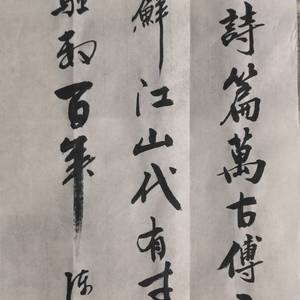 詩篇萬古傳
鮮江山代有才
數百年